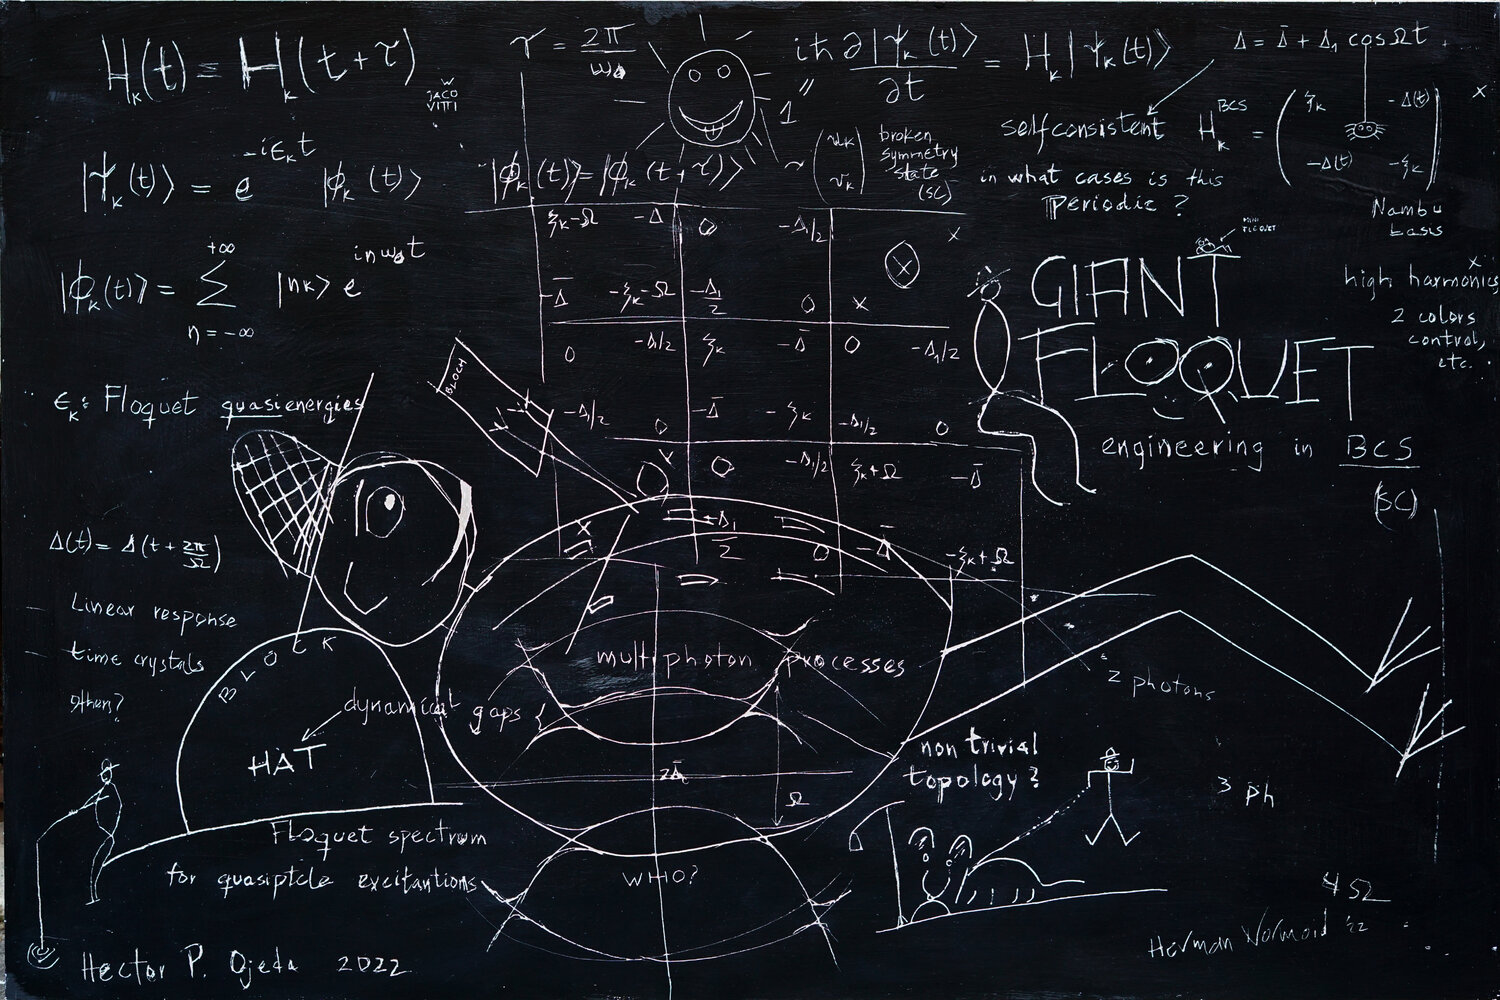 H_k(t) = H_k(t+τ)
W JACO VITTI
τ = 2π/ω₀
iħ ∂|ψ_k(t)⟩/∂t = H_k|ψ_k(t)⟩
Δ = Δ̄ + Δ₁ cosΩt
1"
|ψ_k(t)⟩ = e^{-iϵ_k t} |ϕ_k(t)⟩
|ϕ_k(t)⟩ = |ϕ_k(t+τ)⟩
~ (u_k v_k)
broken
symmetry
state
(SC)
selfconsistent H_k^BCS = (ξ_k -Δ(t) -Δ(t) -ξ_k)
in what cases is this
periodic?
Nambu
basis
|ϕ_k(t)⟩ = Σ_{n=-∞}^{+∞} |nk⟩ e^{inω₀t}
ξ_k-Ω -Δ̄ 0 -Δ₁/2 x
-Δ̄ -ξ_k-Ω -Δ₁/2 0 x
0 -Δ₁/2 ξ_k -Δ̄ 0 -Δ₁/2
-Δ₁/2 0 -Δ̄ -ξ_k -Δ₁/2 0
0 -Δ₁/2 ξ_k+Ω -Δ̄
-Δ₁/2 0 -Δ̄ -ξ_k+Ω
MINI FLOQUET
GIANT
FLOQUET
engineering in BCS
(SC)
high harmonics
2 colors
control,
etc.
ϵ_k: Floquet quasienergies
BLOCH
Δ(t) = Δ(t + 2π/Ω)
- Linear response
- time crystals
others?
BLOCK
HAT
dynamical gaps
multiphoton processes
2 photons
2Δ̄
Ω
non trivial
topology?
3 ph
Floquet spectrum
for quasiptcle excitantions
WHO?
4Ω
Hector P. Ojeda 2022
Herman Wormoid '22